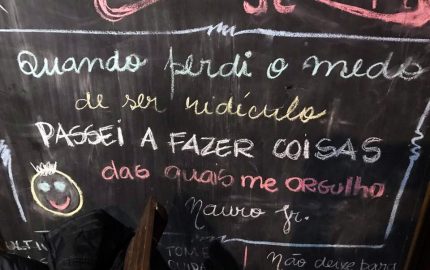 Quando perdi o medo
de ser ridículo
PASSEI A FAZER COISAS
das quais me ORGULHO.
Mauro Jr.
TOME
Não deixe para